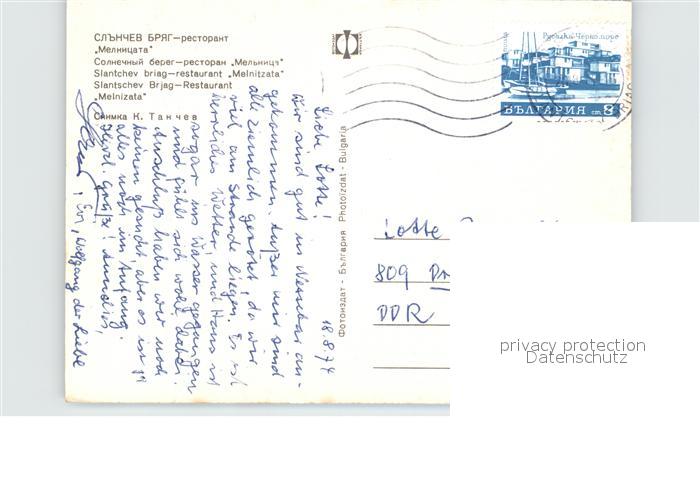 СЛЪНЧЕВ БРЯГ—ресторант
„Мелницата"
Солнечный берег—ресторан „Мельница"
Slantchev briag—restaurant „Melnitzata"
Slantschev Brjag—Restaurant
„Melnizata"
Снимка К. Танчев
Фотоиздат - България Photoizdat - Bulgaria
Русалка-Черно море
поща
БЪЛГАРИЯ ст. 8
18.8.74
Liebe Lotte!
Wir sind gut in Nessebar an-
gekommen. Außer mir sind
alle ziemlich gerötet, da wir
viel am Strande liegen. Es ist
herrliches Wetter, und Hans ist
sogar ins Wasser gegangen
und fühlt sich wohl dabei.
Anschluß haben wir noch
keinen gesucht, aber es ist ja
alles noch im Anfang.
Herzl. Grüße!
Evi, Wolfgang der Liebe
Lotte
809
DDR
privacy protection
Datenschutz